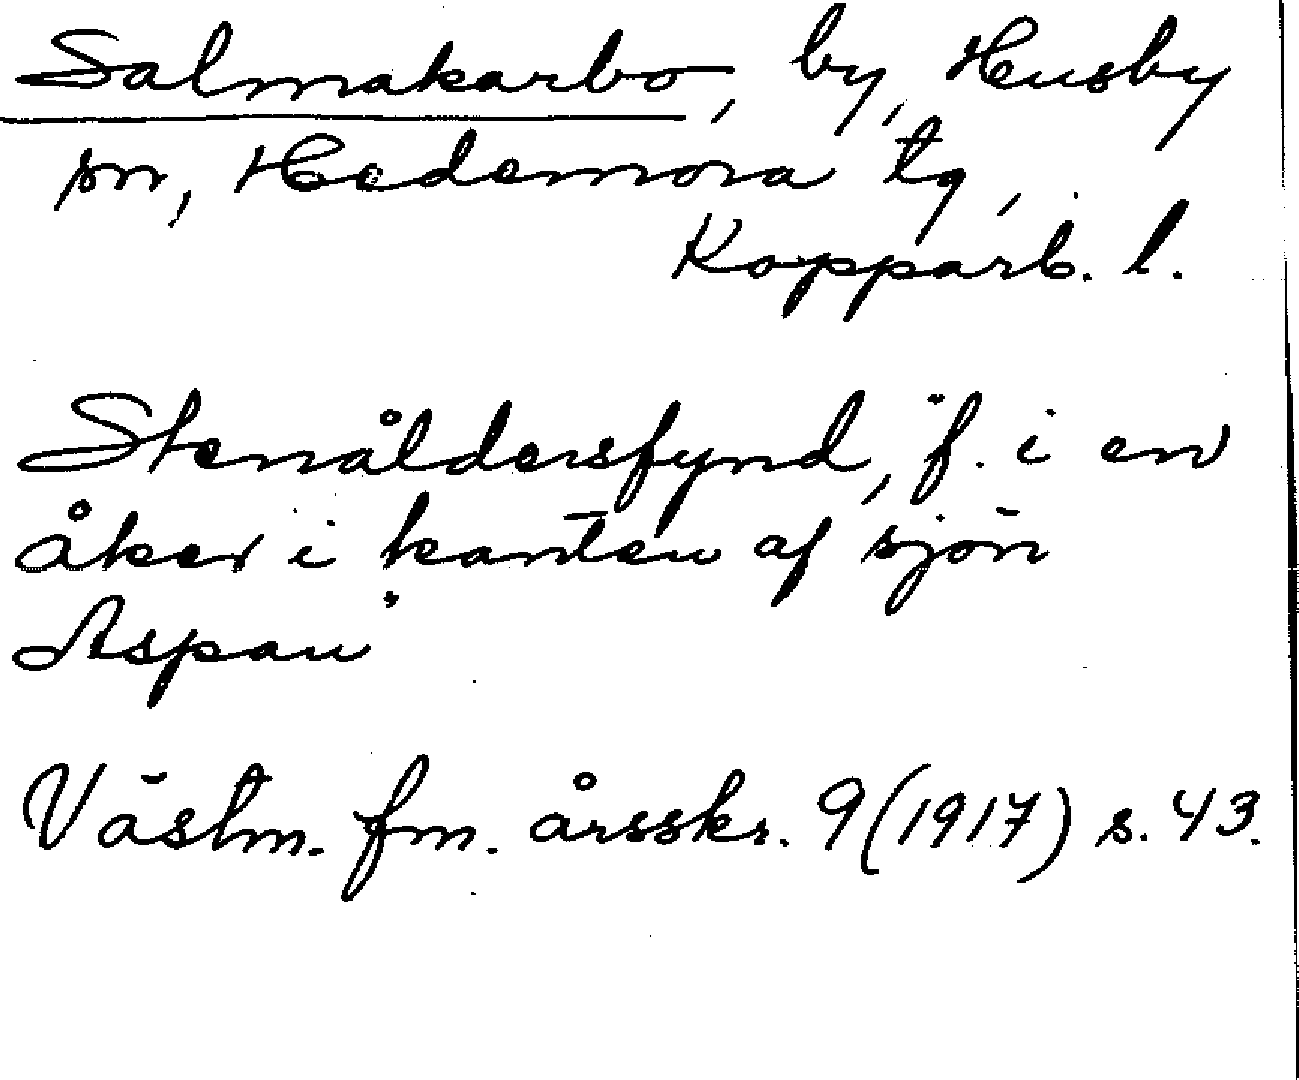 Salmakarbo, by, Husby
sn, Hedemora tg,
Kopparb. l.
Stenåldersfynd, "f. i en
åker i kanten af sjön
Aspan"
Västm. fm. årsskr. 9 (1917) s. 43.